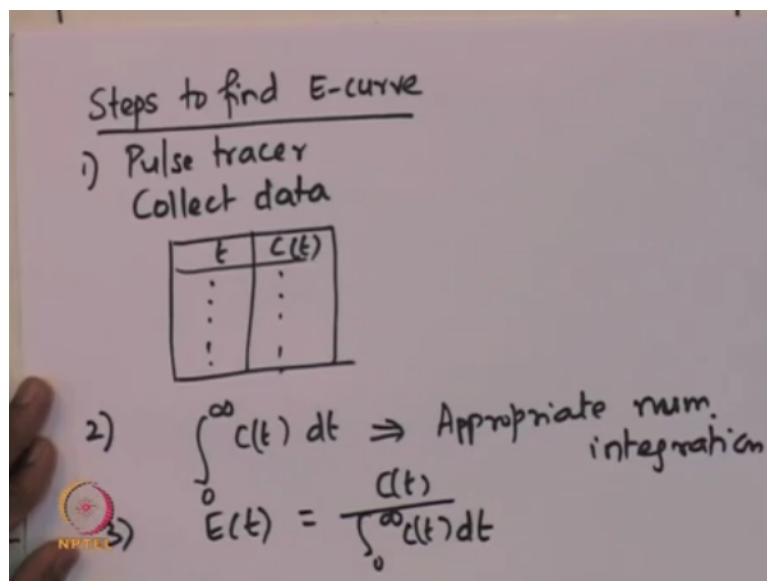 Steps to find E-curve
1) Pulse tracer
Collect data
t C(t)
2) ∫₀^∞ C(t) dt ⇒ Appropriate num.
integration
3) E(t) = C(t) / ∫₀^∞ C(t) dt
NPTEL